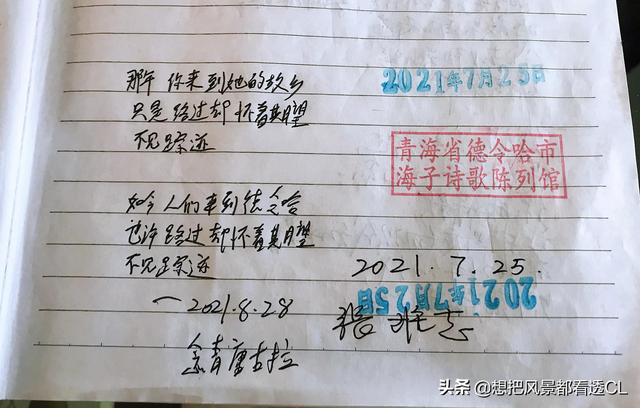 2021年7月25日
那年 你来到她的故乡
只是路过却怀着期望
不见踪迹
青海省德令哈市
海子诗歌陈列馆
如今 人们来到德令哈
也许路过却怀着期望
不见踪迹
2021.7.25.
2021年7月25日
一2021.8.28
张
志
唐古拉
头条 @想把风景都看透CL